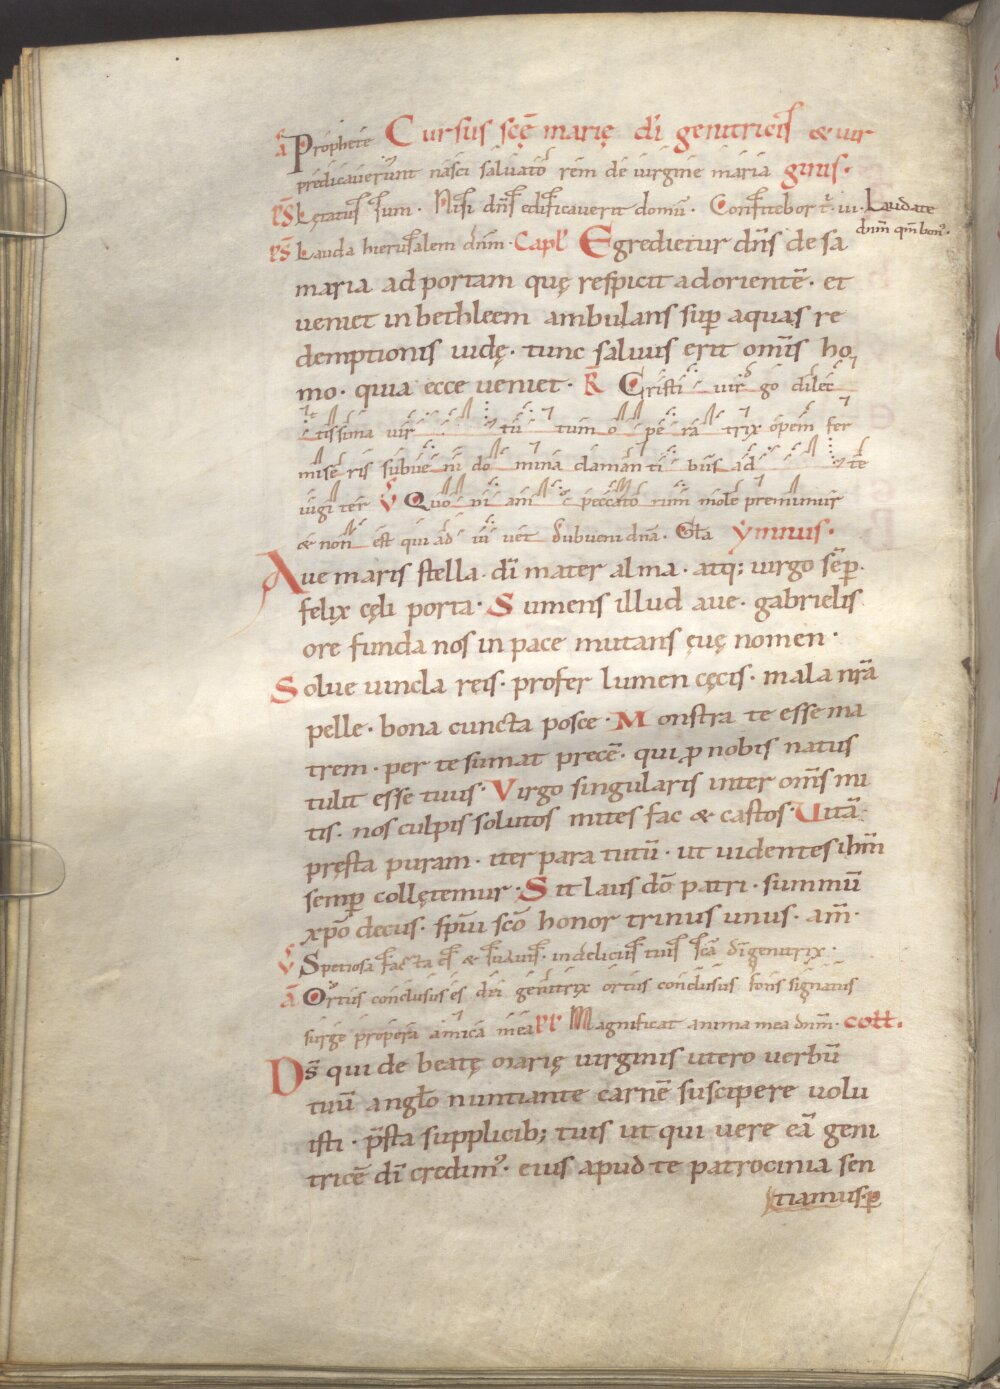 a Prophete Cursus scē marię dī genitricis & uir
predicauerunt nasci saluatorem de uirgine maria ginis.
ps Lętatus sum. Nisi dns̄ edificauerit domū. Confitebor t̄. iii. Laudate
dnm̄ qm̄ bon᾽.
ps Lauda hierusalem dnm̄. Capl̄ Egredietur dns̄ de sa
maria ad portam quę respicit ad orientē. et
ueniet in bethleem ambulans sup̄ aquas re
demptionis iudę. tunc saluus erit omīs ho
mo. quia ecce ueniet. R̄ Cristi uirgo dilec
tissima uirtutum operatrix opem fer
miseris subueni domina clamantibus ad te
iugiter V Quoniam peccatorum mole premimur
& non est qui adiuuet Subueni dnā. Gl̄a ymnus.
Aue maris stella. dī mater alma. atq; uirgo sēp̄.
felix cęli porta. Sumens illud aue. gabrielis
ore funda nos in pace mutans ęuę nomen.
Solue uincla reis. profer lumen cęcis. mala nrā
pelle. bona cuncta posce. Monstra te esse ma
trem. per te sumat precē. qui p nobis natus
tulit esse tuus. Virgo singularis inter oms̄ mi
tis. nos culpis solutos mites fac & castos. Uitā
pręsta puram. iter para tutū. ut uidentes ihm̄
semp̄ collętemur. Sit laus dō patri. summū
xpō decus. spūi scō honor trinus unus. am̄.
V Speciosa facta es & suauis. in deliciis tuis scā dī genitrix.
ā Ortus conclusus es dei genitrix ortus conclusus fons signatus
surge propera amica mea ps Magnificat anima mea dnm̄. coll̄.
Ds̄ qui de beatę marię uirginis utero uerbū
tuū angl̄o nuntiante carnē suscipere uolu
isti. p̄sta supplicib; tuis ut qui uere eā geni
tricē dī credim᾽. eius apud te patrocinia sen
tiamus. p